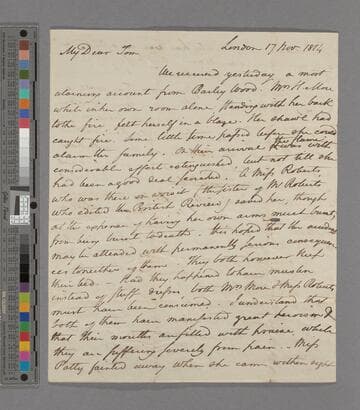 My Dear Tom London 17 Nov 1814
We received yesterday a most
alarming account from Barley Wood. Mrs H More
while in her own room alone standing with her back
to the fire felt herself in a blaze. Her shawl had
caught fire. Some little time passed before she could
alarm the family. On their arrival the flame was with
considerable effort extinguished but not till she
had been a good deal scorched. A Miss Roberts
who was there on a visit (the sister of Mr Roberts
who edited the British Review) saved her, though
at the expense of having her own arms much burnt,
from being burnt to death. It is hoped that the accident
may be attended with permanently serious consequen
ces to neither of them. They both however keep
their bed. Had they happened to have muslin
instead of stuff dresses both Mrs More & Miss Roberts
must have been consumed. I understand that
both of them have manifested great heroism &
that their mouths are filled with praise while
they are suffering severely from pain. Miss
Patty fainted away when she came within sight